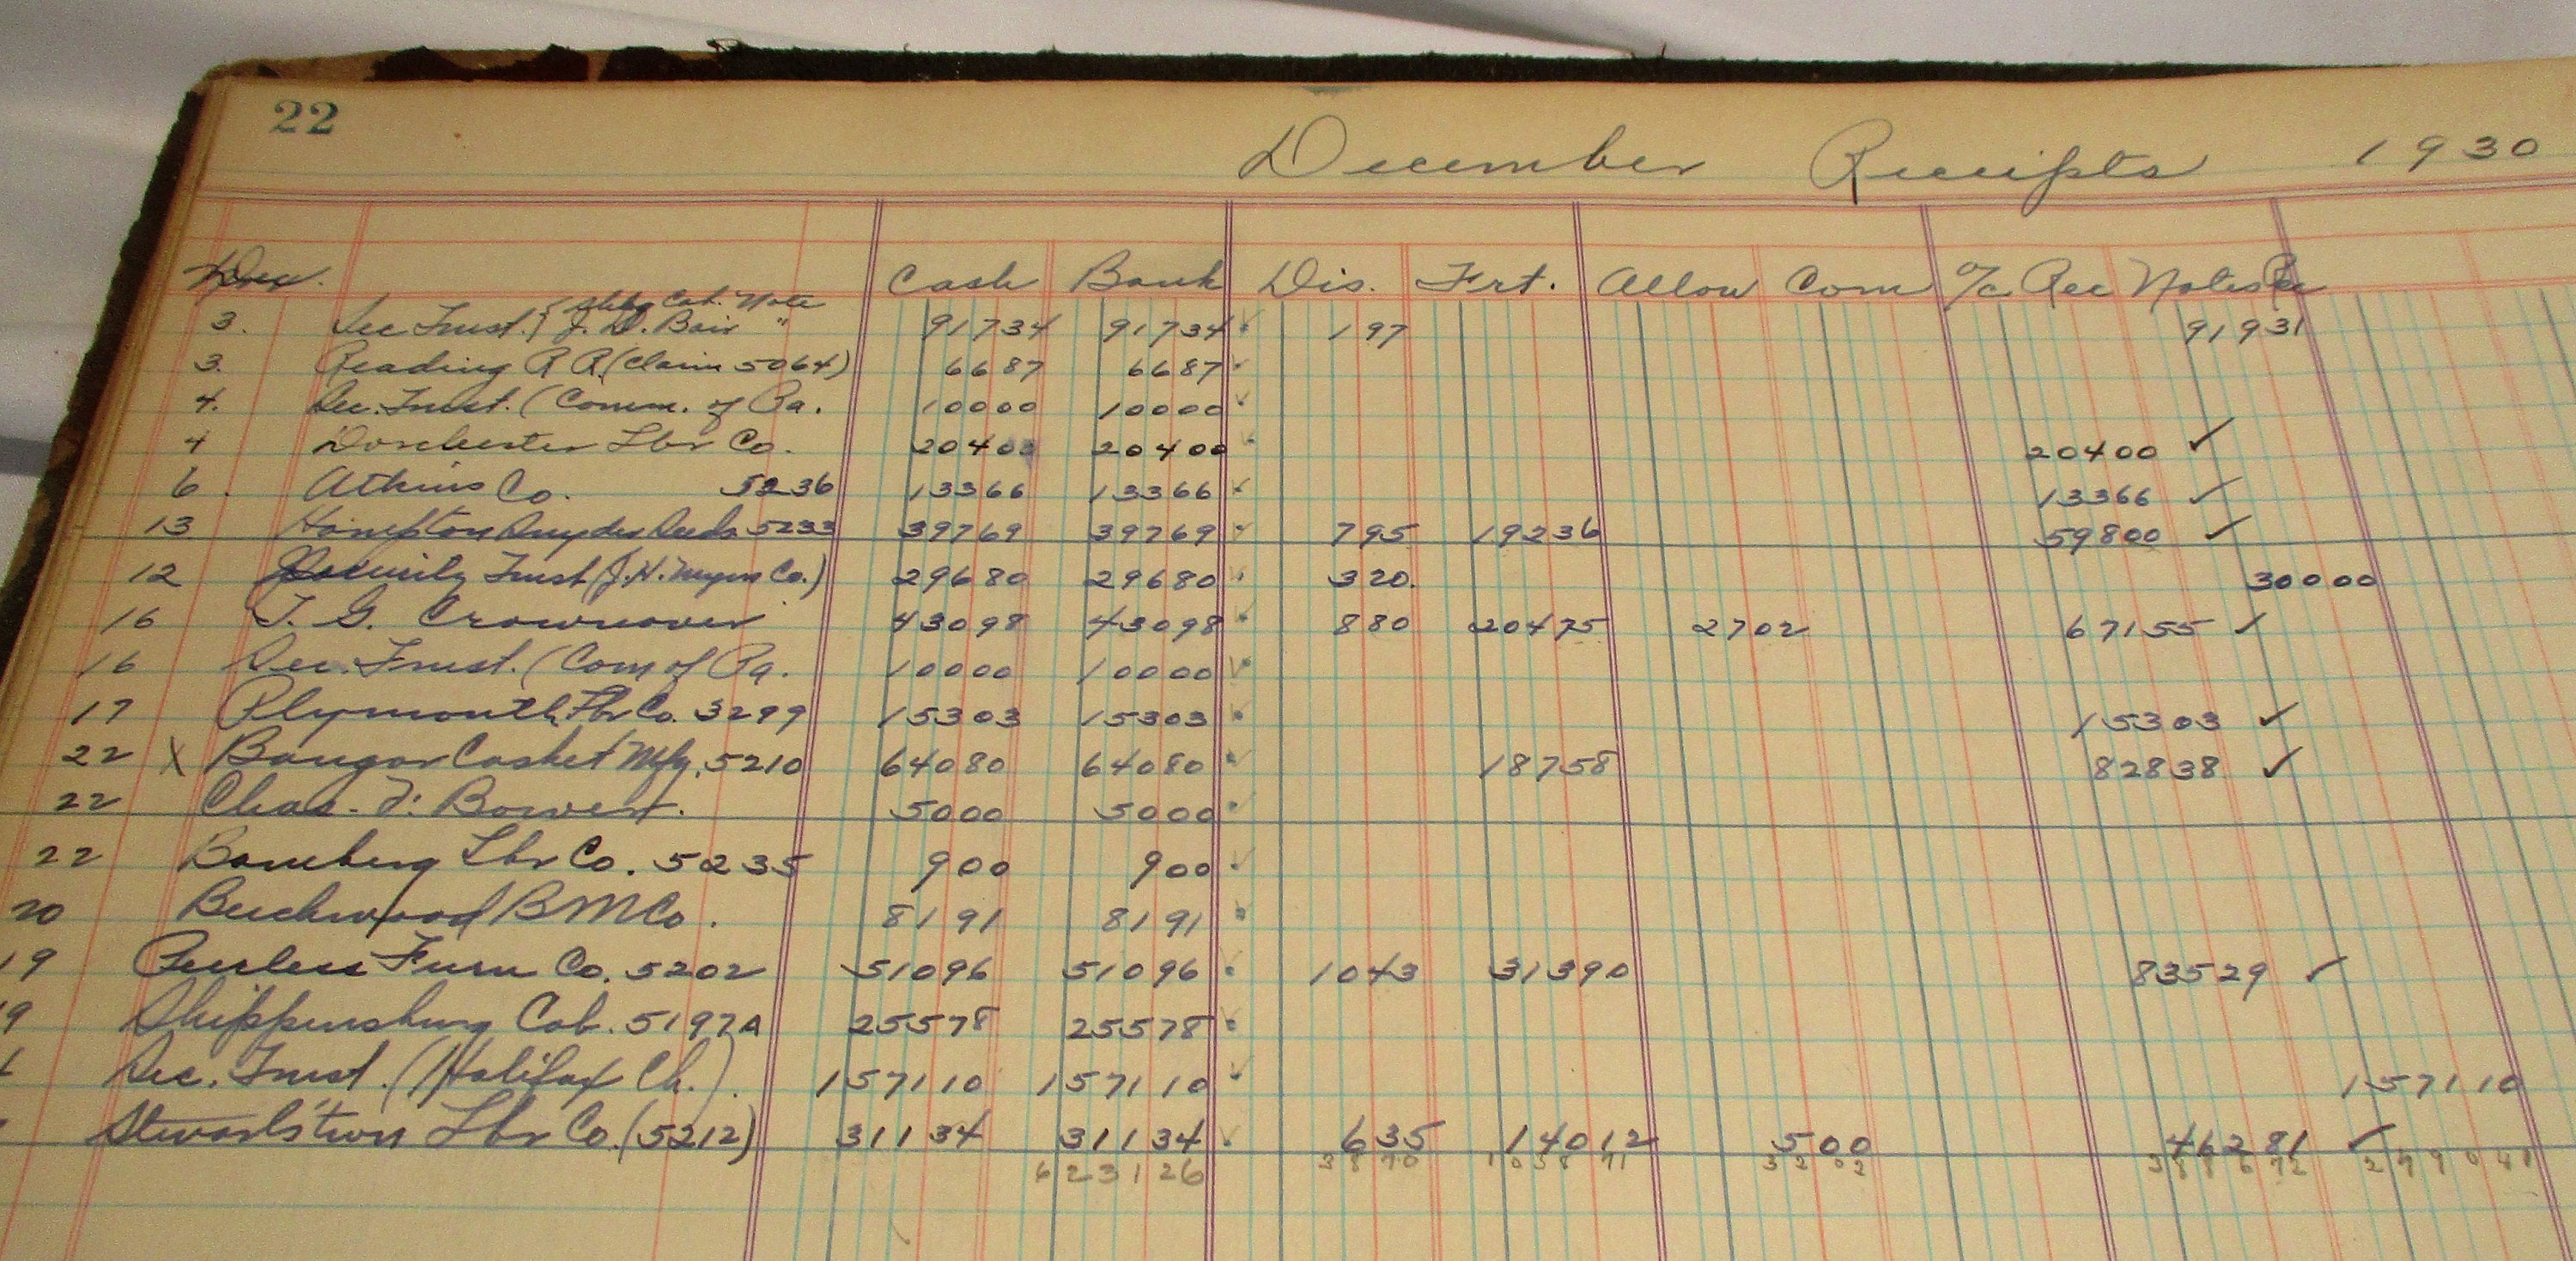 22
December Receipts 1930
Dec. Cash Bank Dis. Frt. Allow Com a/c Rec Notes Rec
Cab. Note
3. Sec Trust. { J. D. Bair " 91734 91734 197 91931
3. Reading R R. (Claim 5064) 6687 6687
4. Sec. Trust. (Comm. of Pa. 10000 10000
4 Dorchester Lbr Co. 20400 20400 20400 ✓
6. Atkins Co. 5236 13366 13366 13366 ✓
13 Hampton Snyder 5233 39769 39769 795 19236 59800 ✓
12 Security Trust (J.H. Myers Co.) 29680 29680 320. 30000
16 T. G. Crownover 43098 43098 880 20475 2702 67155 ✓
16 Sec. Trust. (Com of Pa. 10000 10000
17 Plymouth Co. 3299 15303 15303 15303 ✓
22 X Bangor Casket Mfg. 5210 64080 64080 18758 82838 ✓
22 Chas. F. Bower. 5000 5000
22 Bomberg Lbr Co. 5235 900 900
20 Beechwood B M Co. 8191 8191
19 Peerless Furn Co. 5202 51096 51096 1043 31390 83529 ✓
9 Shippensburg Cab. 5197A 25578 25578
Sec. Trust. (Halifax Ch.). 157110 157110 157110
Stewartstown Lbr Co. (5212) 31134 31134 635 14012 500 46281 ✓
623126 3870 103871 3202 388672 249041